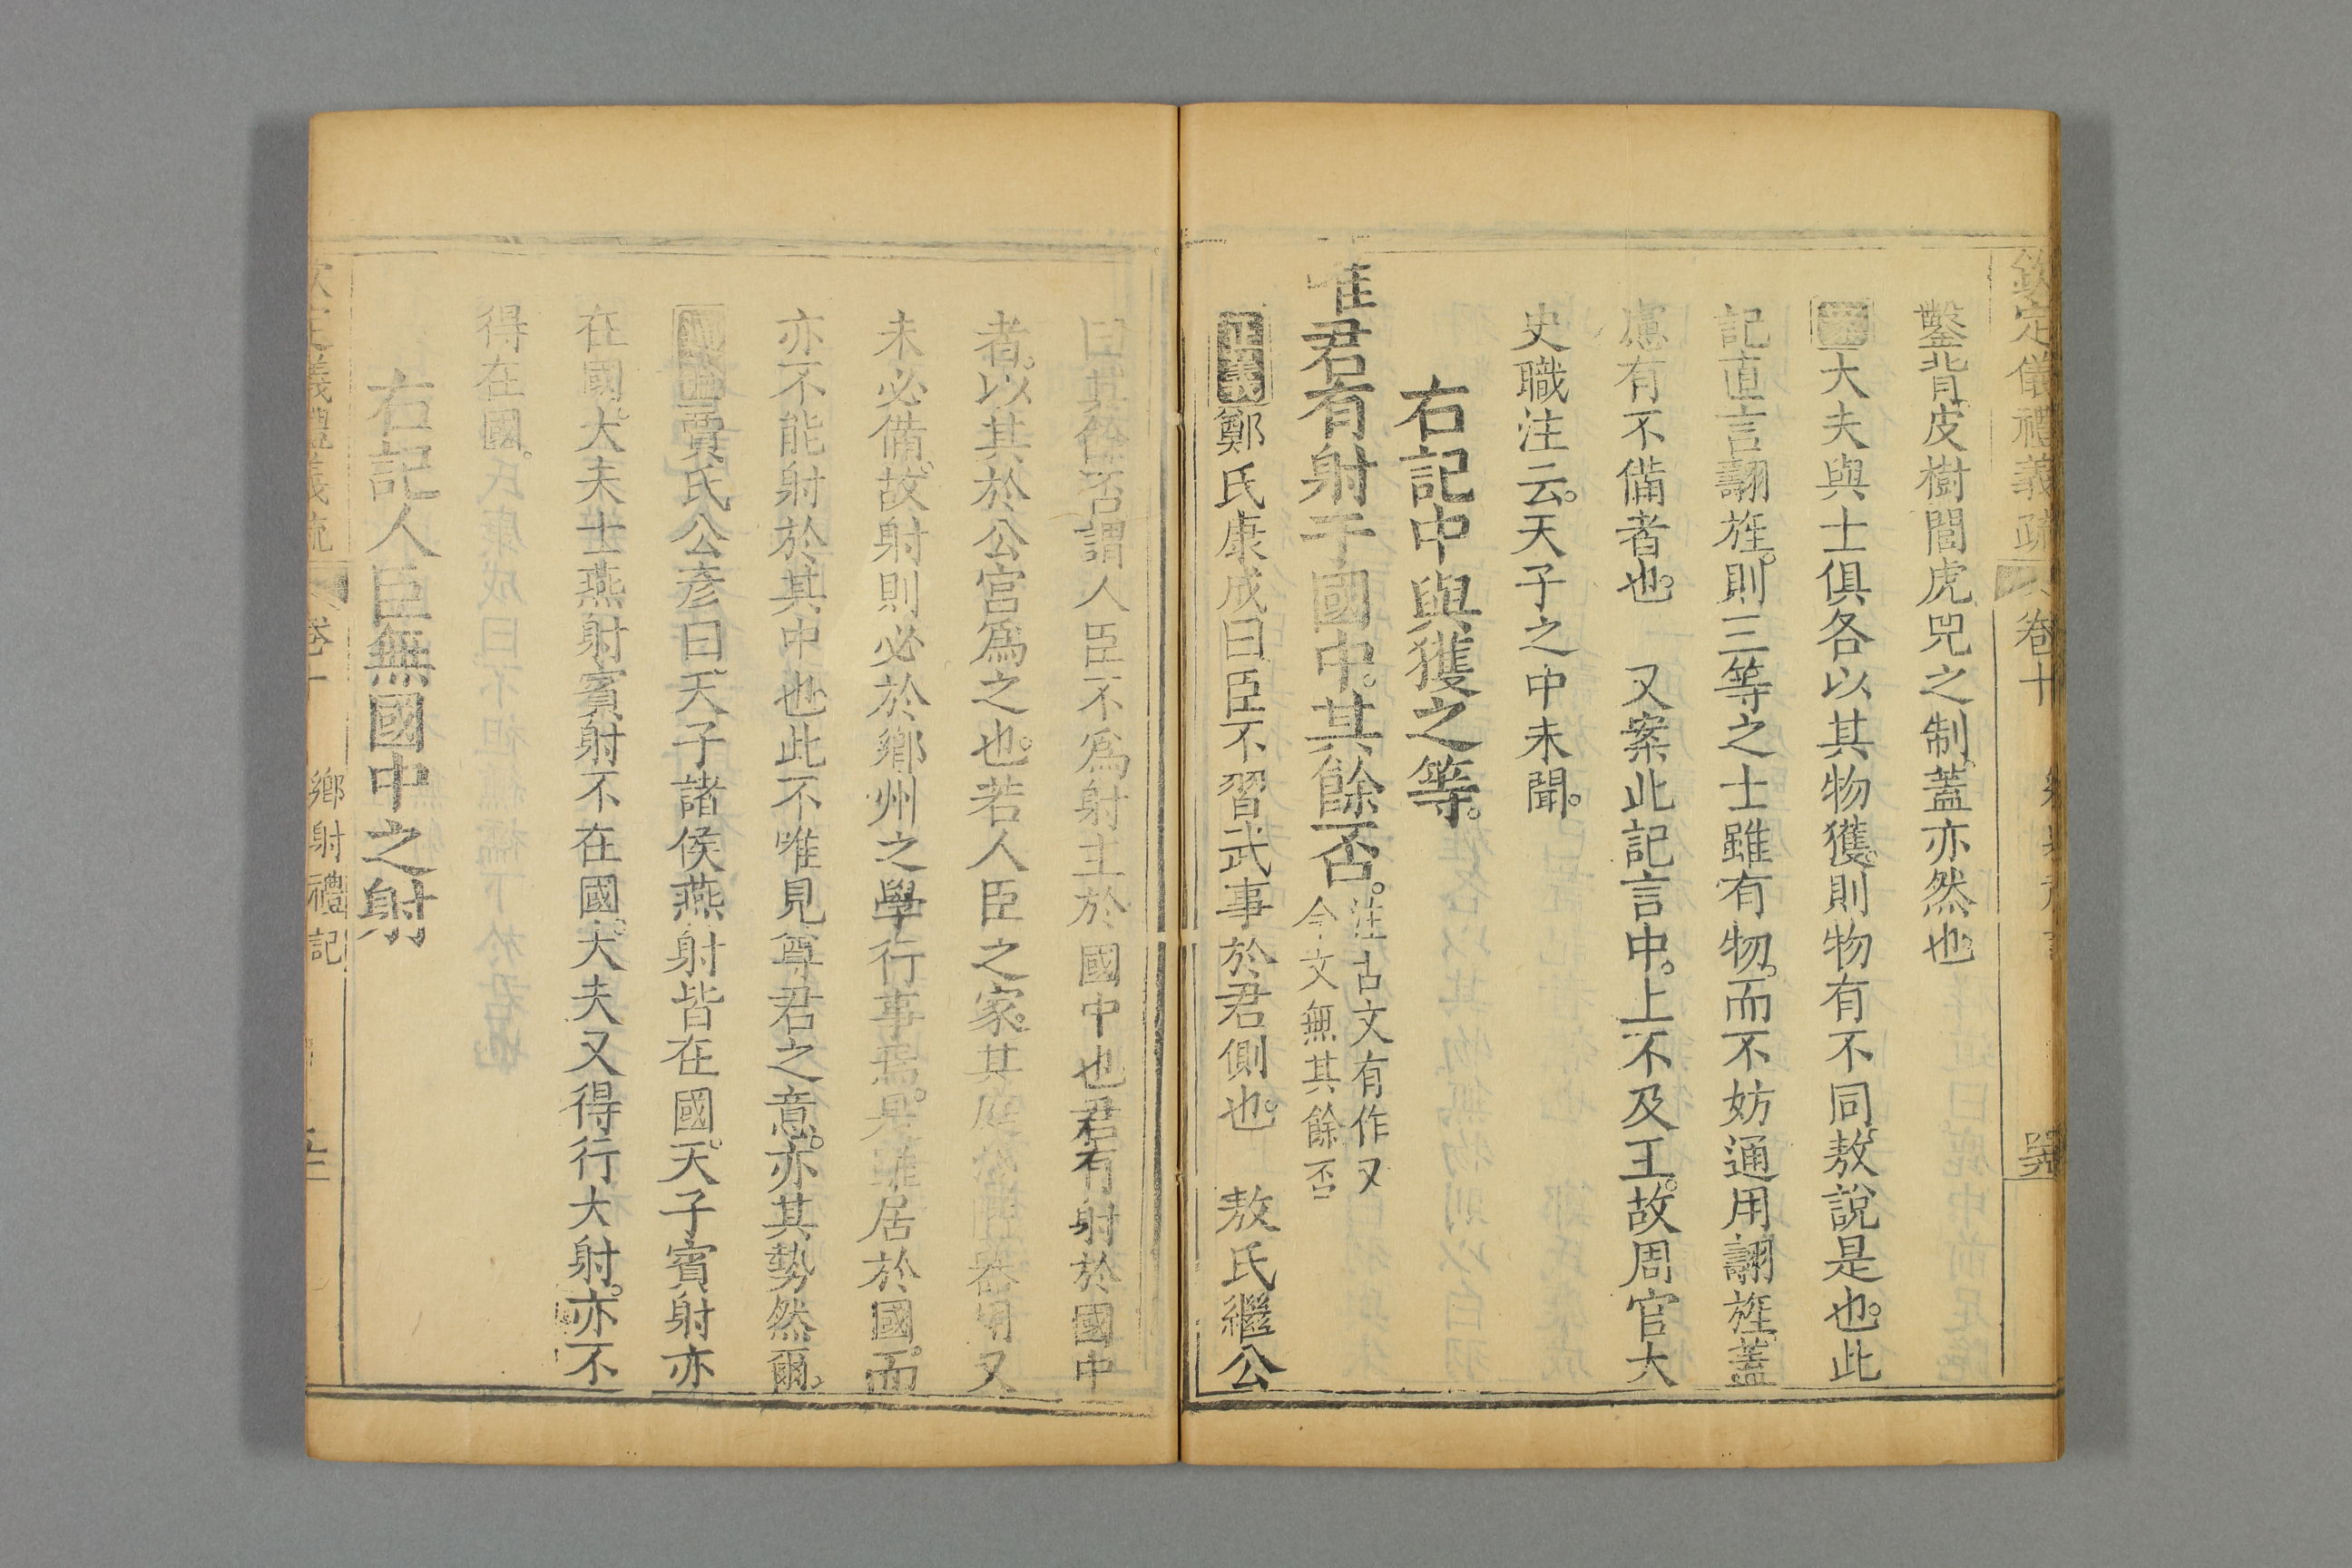 欽定儀禮義疏 卷十
鑿背皮樹閭虎兕之制蓋亦然也
案大夫與士俱各以其物獲則物有不同敖說是也此
記直言翿旌則三等之士雖有物而不妨通用翿旌蓋
慮有不備者也 又案此記言中上不及王故周官大
史職注云天子之中未聞
右記中與獲之等
唯君有射于國中其餘否注古文有作又
今文無其餘否
正義鄭氏康成曰臣不習武事於君側也 敖氏繼公
曰其餘否謂人臣不為射主於國中也君有射於國中
者以其於公宮為之也若人臣之家其庭器用又
未必備故射則必於鄉州之學行事焉是雖居於國而
亦不能射於其中也此不唯見尊君之意亦其勢然爾
賈氏公彥曰天子諸侯燕射皆在國天子賓射亦
在國大夫士燕射賓射不在國大夫又得行大射亦不
得在國
右記人臣無國中之射
鄉射禮記